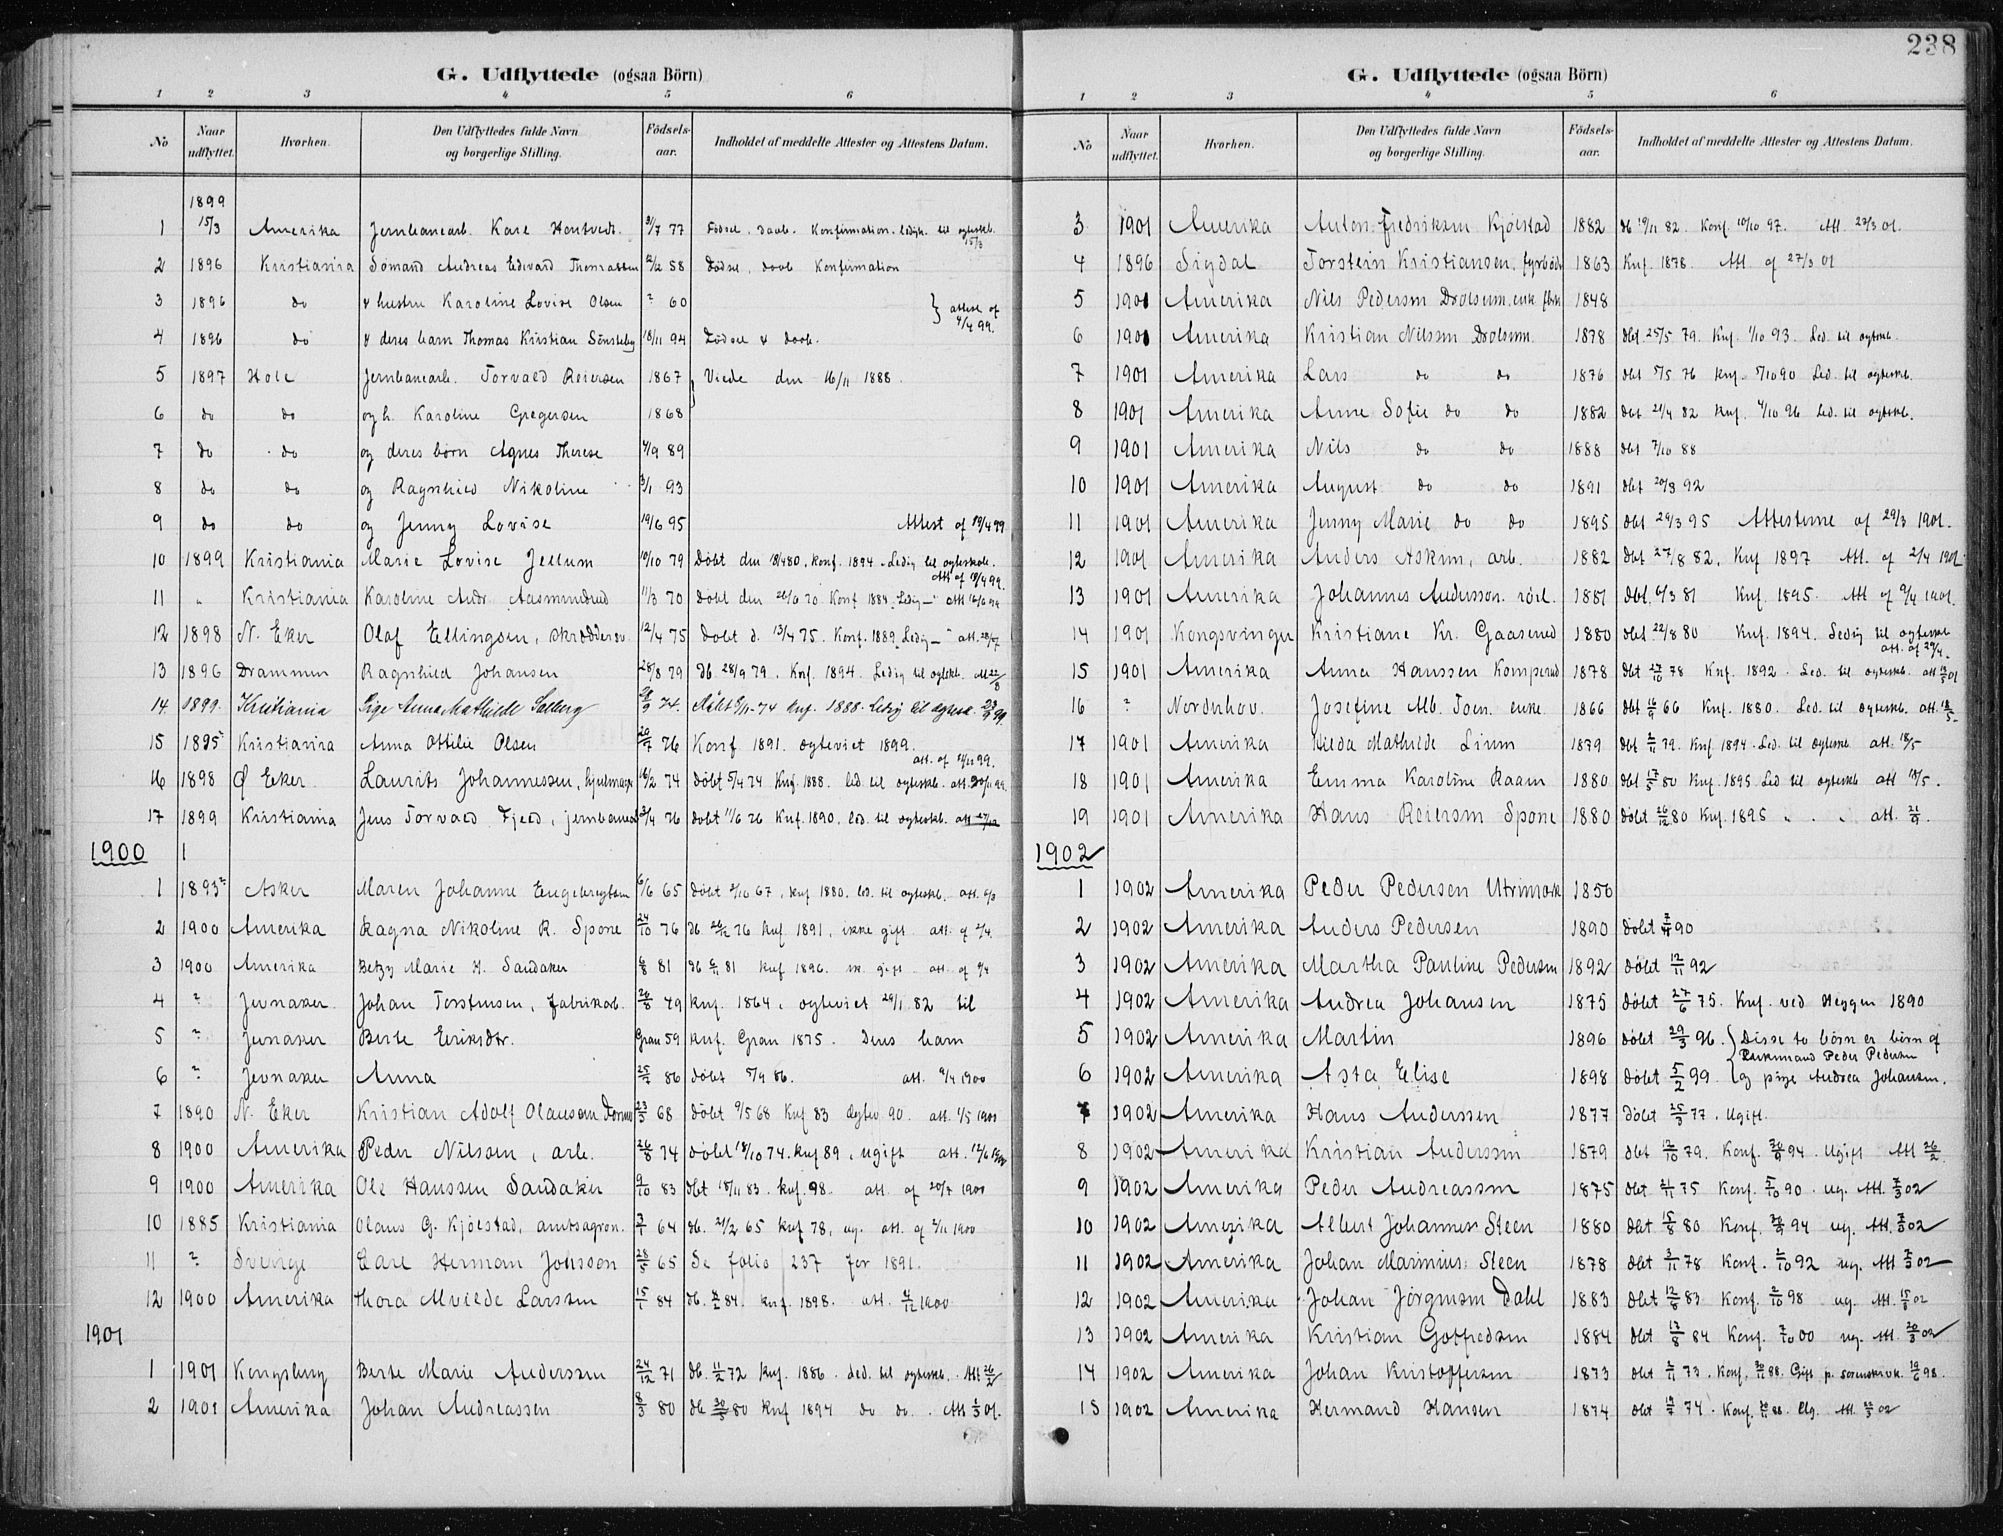 238
G. Udflyttede (ogsaa Börn)
1 2 3 4 5 6
No Naar udflyttet. Hvorhen. Den Udflyttedes fulde Navn og borgerlige Stilling. Födsels-aar. Indholdet af meddelte Attester og Attestens Datum.
1899
1 15/3 Amerika Jernbanearb. Karl 3/7 77 Födsel, daab. Konfirmation. ledig til egteskb. 15/3
2 1896 Kristiania Sömand Andreas Edvard Thomassen 2/12 58 Födsel, daab Konfirmation
3 1896 do & hustru Karoline Lovise Olsen ? 60 } attest af 4/4 99.
4 1896 do & deres barn Thomas Kristian Sönsteby 18/11 94 Födsel & daab.
5 1897 Hole Jernbanearb. Torvald Reiersen 1867 Viede den 16/11 1888.
6 do do og h. Karoline Gregersen 1868
7 do do og deres börn Agnes Therese 4/9 89
8 do do og Ragnhild Nikoline 3/1 93
9 do do og Jenny Lovise 19/6 95 Attest af 19/4 99
10 1899 Kristiania Marie Lovise Jellum 10/10 79 Döbt den 18/4 80, Konf. 1894. Ledig til egteskb. Att. af 19/4 99.
11 " Kristiania Karoline Andr. Aasmundrud 11/3 70 Döbt den 26/6 70 Konf 1884. Ledig —"
12 1898 N. Eker Olaf Ellingsen, skrædder 12/4 75 Döbt d. 13/4 75. Konf. 1889. Ledig —" att. 28/7
13 1896 Drammen Ragnhild Johansen 28/8 79 Db. 28/9 79. Knf. 1894. Ledig til egteskb. Att 22/8
14 1899 Kristiania Pige Anna Mathilde Solberg 29/9 74. Döbt 8/11-74 Knf. 1888. Ledig til egtesk. 23/9 99.
15 1895? Kristiania Anna Ottilie Olsen 20/7 76 Konf 1891. egteviet 1899. att. af
16 1898 Ø Eker Laurits Johannessen, hjulmager 18/2 74 döbt 5/4 74 Knf. 1888. led. til egteskb. att. 20/11 99.
17 1899 Kristiania Jens Torvald Fjeld, jernbanearb 3/4 76 döbt 11/6 76 Knf. 1890, led. til egteskb.
1900
1 1893? Asker Maren Johanne Engebregtsen 6/6 65 Döbt 2/10 67, Knf 1880. led. til egteskb. att.
2 1900 Amerika Ragna Nikoline R. Spone 24/10 76 Db 26/12 76 Knf. 1891, ikke gift. att. af 2/4.
3 1900 Amerika Betzy Marie H. Sandaker 6/8 81 Db 6/11 81 Knf 1896. ik. gift. att. af 9/4
4 ? Jevnaker Johan Torstensen, fabrikarb. 26/8 49 Knf. 1864, egteviet 29/11 82 til
5 ? Jevnaker Berte Eriksdtr. Gran 59 Knf. Gran 1875. Deres barn
6 ? Jevnaker Anna 25/2 86 döbt 5/9 86. att. 9/4 1900
7 1890 N. Eker Kristian Adolf Olausen 23/3 68 Döbt 9/5 68 Knf 83 egtev. 90. att. 1/5 1900
8 1900 Amerika Peder Nilsson, arb. 26/8 74 döbt 18/10 74. Knf 89, ugift att. 12/6 1900
9 1900 Amerika Ole Hanssen Sandaker 9/10 83 Dbt 18/11 83. Knf. 98. att. af 20/7 1900
10 1885 Kristiania Olaus G. Kjölstad, amtsagron. 7/1 64 Db. 21/2 65 Knf 78, ug. att. af 2/11 1900
11 ? Sverige Carl Herman Jonsson 28/5 65 Se folio 237 for 1891.
12 1900 Amerika Thora Alvilde Larssen 15/1 84 Db. 84. Knf. 1898. att. 4/12 1900
1901
1 1901 Kongsberg Berte Marie Anderssen 24/12 71 Db. 11/2 72 Knf. 1886. Led. til egteskb. Att 26/2
2 1901 Amerika Johan Andreassen 8/3 80 db 30/5 80 Knf 1894 do do. Att 1/3 01.
G. Udflyttede (ogsaa Börn)
1 2 3 4 5 6
No Naar udflyttet. Hvorhen. Den Udflyttedes fulde Navn og borgerlige Stilling. Födsels-aar. Indholdet af meddelte Attester og Attestens Datum.
3 1901 Amerika Anton Fredriksen Kjölstad 1882 Db 19/11 82. Konf. 10/10 97. Att. 27/3 01.
4 1896 Sigdal Torstein Kristiansen, fyrböd 1863 Knf. 1878. Att. af 27/3 01
5 1901 Amerika Nils Pedersen Drolsum, enk. fbrk 1848
6 1901 Amerika Kristian Nilsen Drolsum. 1878 Dbt. 25/5 79. Knf. 1/10 93. Led. til egteskb.
7 1901 Amerika Lars do do 1876 dbt 7/5 76 Knf. 5/10 90 Led. til egteskb.
8 1901 Amerika Anne Sofie do do 1882 dbt 21/4 82 Knf. 4/10 96 Led. til egteskb.
9 1901 Amerika Nils do do 1888 dbt 7/10 88
10 1901 Amerika August do do 1891 Dbt 20/3 92
11 1901 Amerika Jenny Marie do do 1895 dbt 29/3 95 Attesterne af 29/3 1901.
12 1901 Amerika Anders Askim, arb. 1882 Dbt 27/8 82, Knf 1897 Att. af 2/4 1901
13 1901 Amerika Johannes Andersson rörl. 1881 dbt. 6/3 81 Knf. 1895. Att af 9/4 1901.
14 1901 Kongsvinger Kristiane Kr. Gaaserud 1880 dbt 22/8 80 Knf. 1894. Ledig til egteskb att. af 29/4.
15 1901 Amerika Anna Hanssen Komperud 1878 Dbt 27/10 78 Knf. 1892. Led. til egteskb. att 13/5 01
16 ? Norderhov. Josefine Alb. Toen. enke 1866 dbt 16/9 66 Knf. 1880. Led. til egteskb. att. 18/5
17 1901 Amerika Hilda Mathilde Lium 1879 Dbt 2/11 79. Knf 1894. Led. til egteskb att. 18/5
18 1901 Amerika Emma Karoline Raaen 1880 dbt 17/5 80 Knf. 1895 Led til egteskb att 18/5.
19 1901 Amerika Hans Reiersen Spone 1880 Döbt 26/12 80 Knf. 1895 " " " att. 21/9
1902
1 1902 Amerika Peder Pedersen Utrimark 1850
2 1902 Amerika Anders Pedersen 1890 Döbt 90
3 1902 Amerika Martha Pauline Pedersen 1892 Döbt 12/11 92
4 1902 Amerika Andrea Johansen 1875 Döbt 27/6 75. Knf. ved Heggen 1890
5 1902 Amerika Martin 1896 Döbt 29/3 96. { Disse to börn er börn af Enkemand Peder Pedersen
6 1902 Amerika Asta Elise 1898 Döbt 5/2 99. og pige Andrea Johansen.
7 1902 Amerika Hans Anderssen 1877 Döbt 25/3 77. Ugift.
8 1902 Amerika Kristian Anderssen 1879 Dbt 12/10 79. Konf. 94. Ugift Att 26/2.
9 1902 Amerika Peder Andreassen 1875 Dbt. 21/11 75 Konf. 5/10 90. ug. Att. 7/3 02
10 1902 Amerika Albert Johannes Steen 1880 dbt 15/8 80 Konf. 94 ug. Att. 7/3 02
11 1902 Amerika Johan Marinius Steen 1878 Dbt 3/11 78 Konf. 2/10 92 ug. Att 7/3 02
12 1902 Amerika Johan Jörgensen Dahl 1883 Dbt 12/8 83 Konf. 2/10 98 ug. Att. 15/3 02
13 1902 Amerika Kristian Gotfredsen 1884 Dbt 17/8 84 Konf. 7/10 00 ug. Att. 20/3 02
14 1902 Amerika Johan Kristoffersen 1873 Dbt 2/11 73. Konf. 88. Gift p. sorenskrivk. 98.
15 1902 Amerika Hermand Hansen 1874 Dbt 74. Konf. 88. Ug. Att. 22/3 02